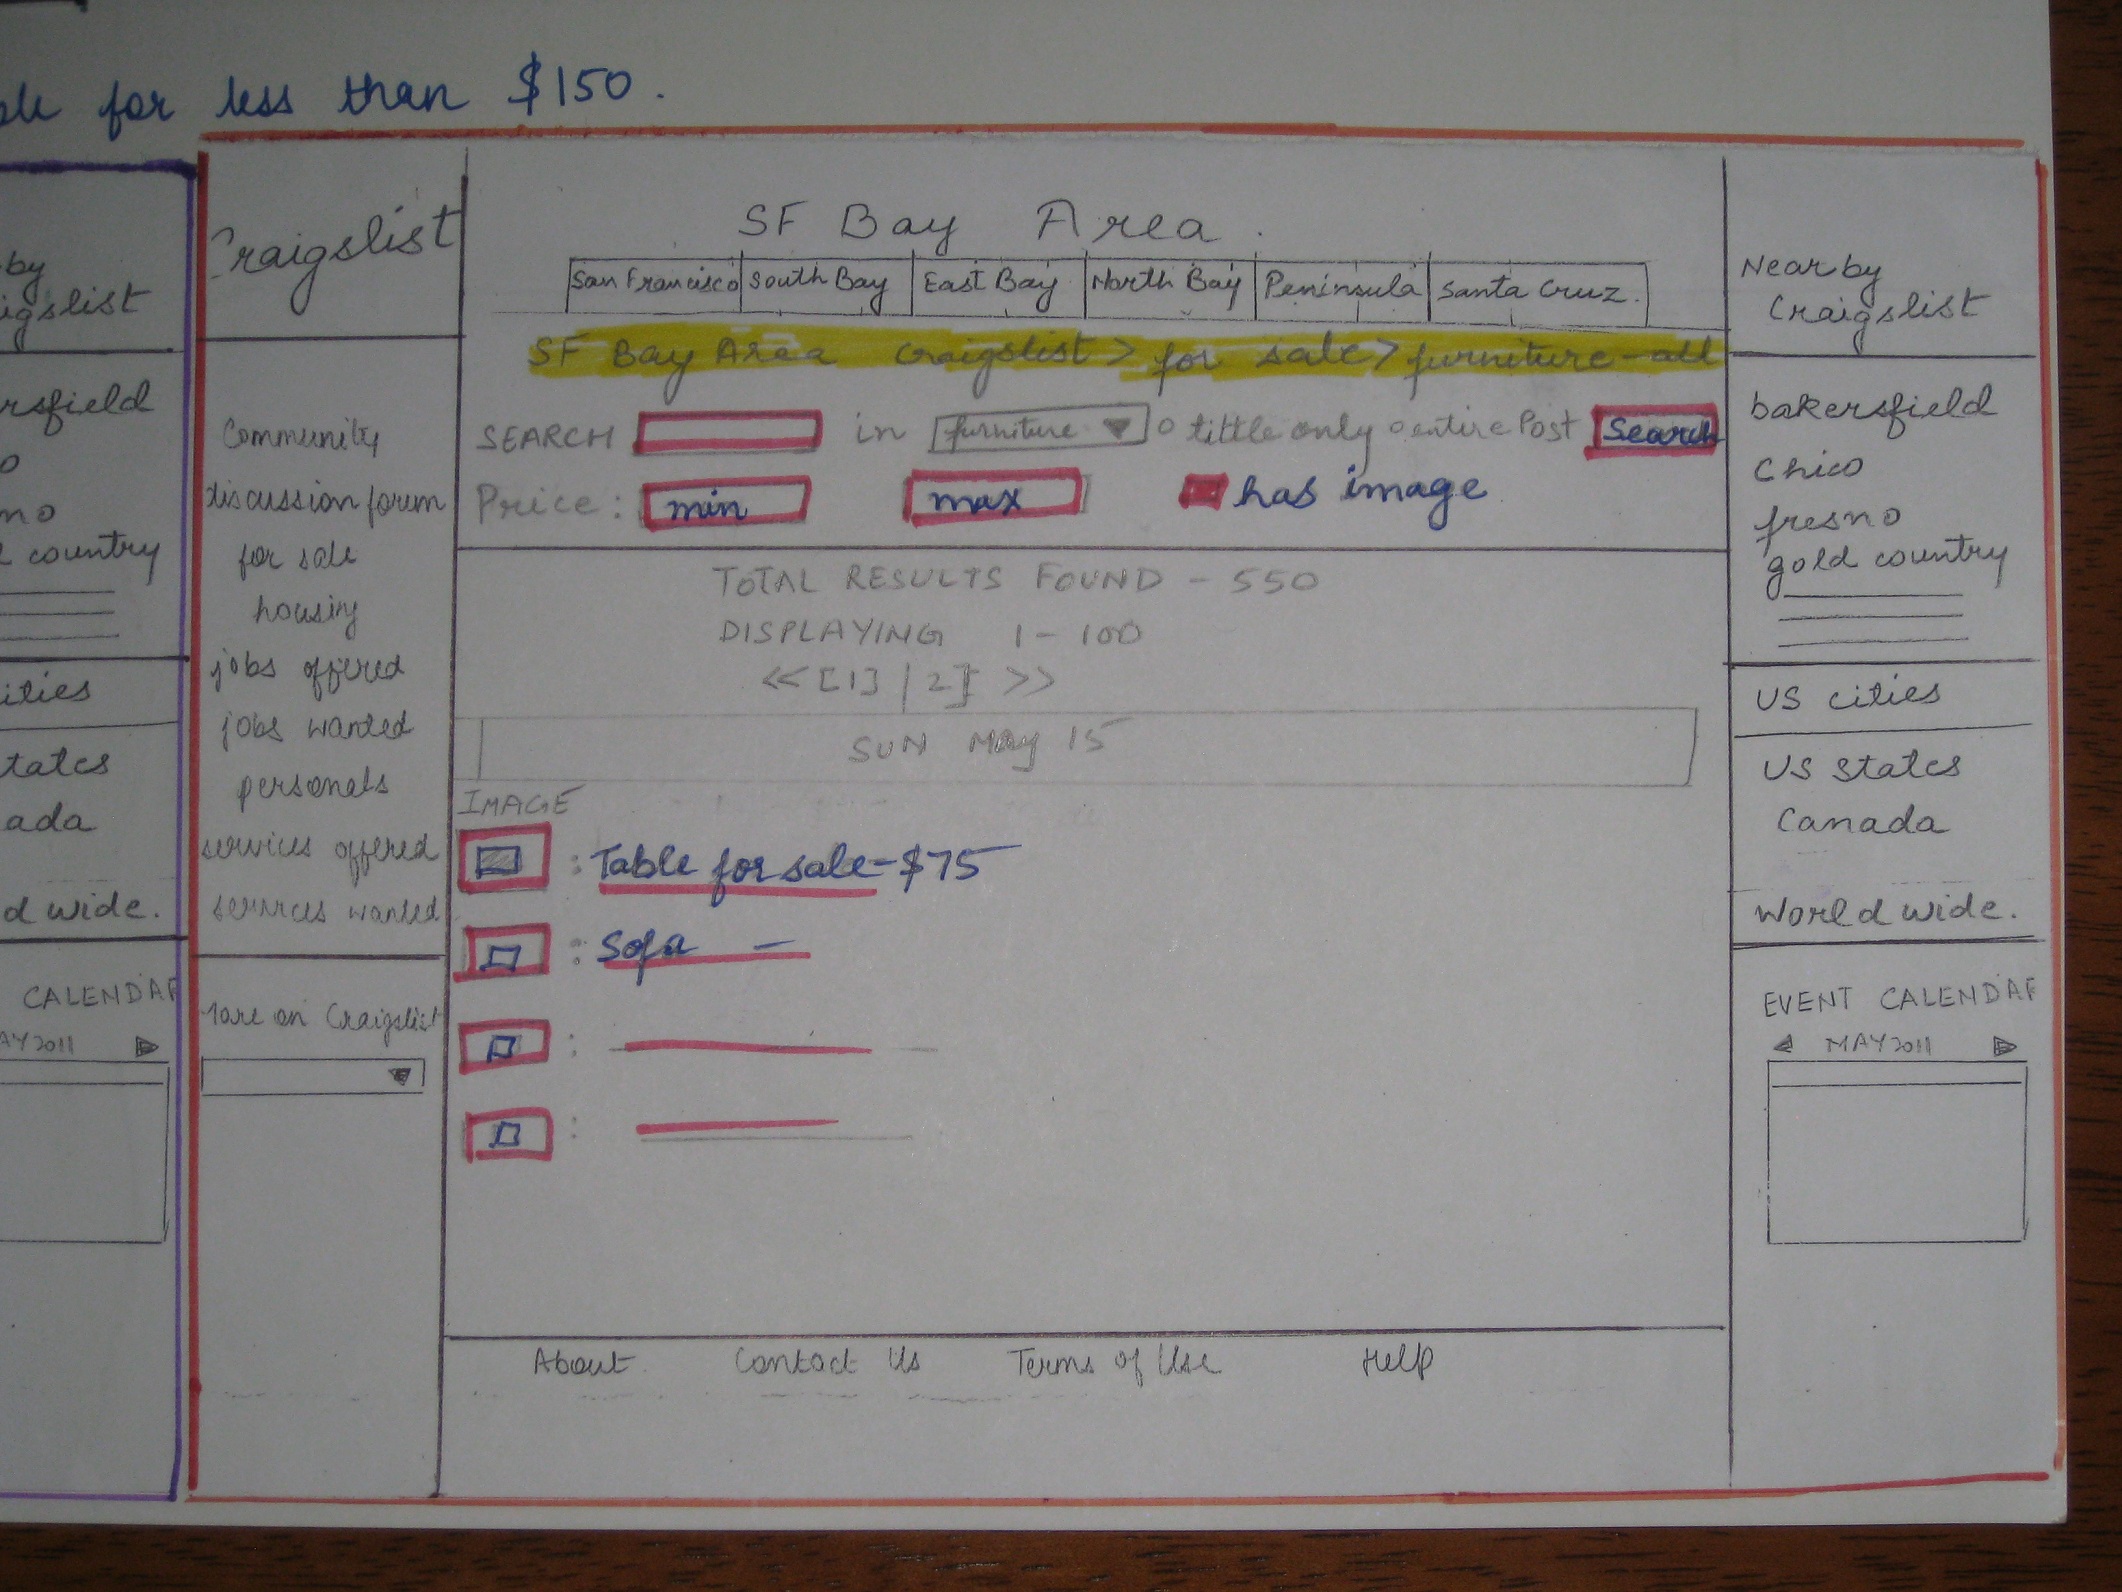 for less than $150.
by
igslist
rsfield
o
no
country
ities
tates
ada
d wide.
CALENDAR
AY 2011
Craigslist
Community
discussion forum
for sale
housing
jobs offered
jobs wanted
personals
services offered
services wanted
More on Craigslist
SF Bay Area.
San Francisco South Bay East Bay North Bay Peninsula Santa Cruz.
SF Bay Area craigslist > for sale > furniture-all
SEARCH in furniture tittle only entire Post Search
Price: min max has image
TOTAL RESULTS FOUND - 550
DISPLAYING 1 - 100
<< [1] | 2] >>
SUN May 15
IMAGE
: Table for sale - $75
: Sofa -
:
:
About Contact Us Terms of Use Help
Nearby
Craigslist
bakersfield
Chico
fresno
gold country
US cities
US states
Canada
World wide.
EVENT CALENDAR
MAY 2011